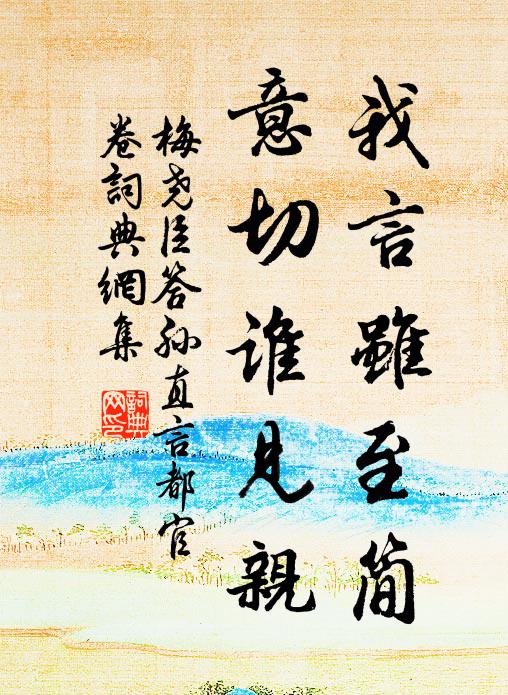 我言雖至簡
意切谁見親
梅尧臣答孙直言都官
卷詞典網集
詞典
网印